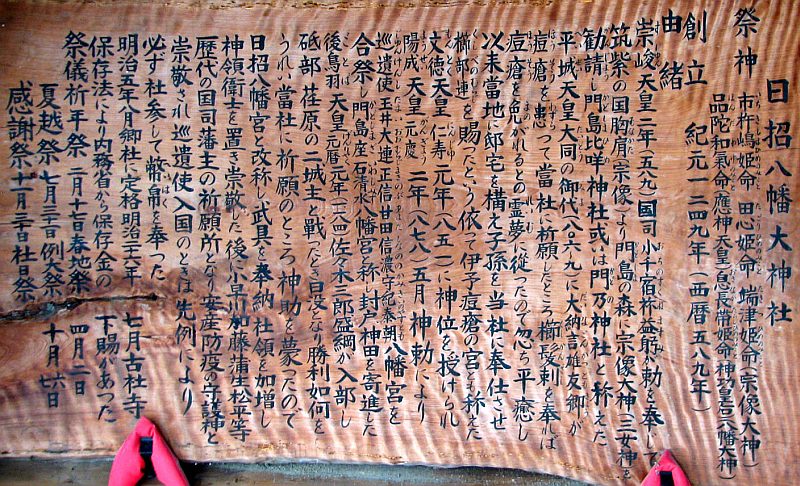 日招八幡大神社
祭神 市杵嶋姫命 田心姫命 端津姫命(宗像大神)
品陀和氣命(應神天皇)息長帯姫命(神功皇后)(八幡大神)
創立 紀元一二四九年(西暦五八九年)
由緒
崇峻天皇二年(五八九)國司小千宿祢益躬が勅を奉じて
筑紫の国胸肩(宗像)より門島の森に宗像大神(三女神を
勧請し門島比咩神社或は門乃神社と称えた
平城天皇大同の御代(八〇六-九)に大納言雄友郷が
痘瘡を患って當社に祈願しところ櫛髪剌を奉れば
痘瘡を免がれるとの霊夢に従ったので忽ち平癒し
以来當地に邸宅を構え子孫を当社に奉仕させ
櫛部連を賜ったという依て伊予痘瘡の宮とも称えた
文徳天皇仁寿元年(八五一)に神位を授けられ
陽成天皇元慶二年(八七八)五月神勅により
巡遺使玉井大連正信甘田信濃守紀春朝八幡宮を
合祭し門島座石清水八幡宮と称し封戸神田を寄進した
後鳥羽天皇元暦元年(一一八四)佐々木三郎盛綱が入部し
砥部荏原の二城主と戦ったとき日没となり勝利如何を
うれい當社に祈願のところ神助を蒙ったので
日招八幡宮と改称し武具を奉納社領を加増し
神領衛士を置き崇敬した 後小早川加藤蒲生松平等
歴代の国司藩主の祈願所となり安産防疫の守護神と
崇敬され巡遺使入国のときは先例により
必ず社参して幣帛を奉った
明治五年八月郷社に定格明治三六年 七月古社寺
保存法により内務省から保存金の 下賜があった
祭儀祈年祭 二月十七日春地祭 四月二日
夏越祭 七月三一日例大祭 十月六日
感謝祭十一月三〇日社日祭